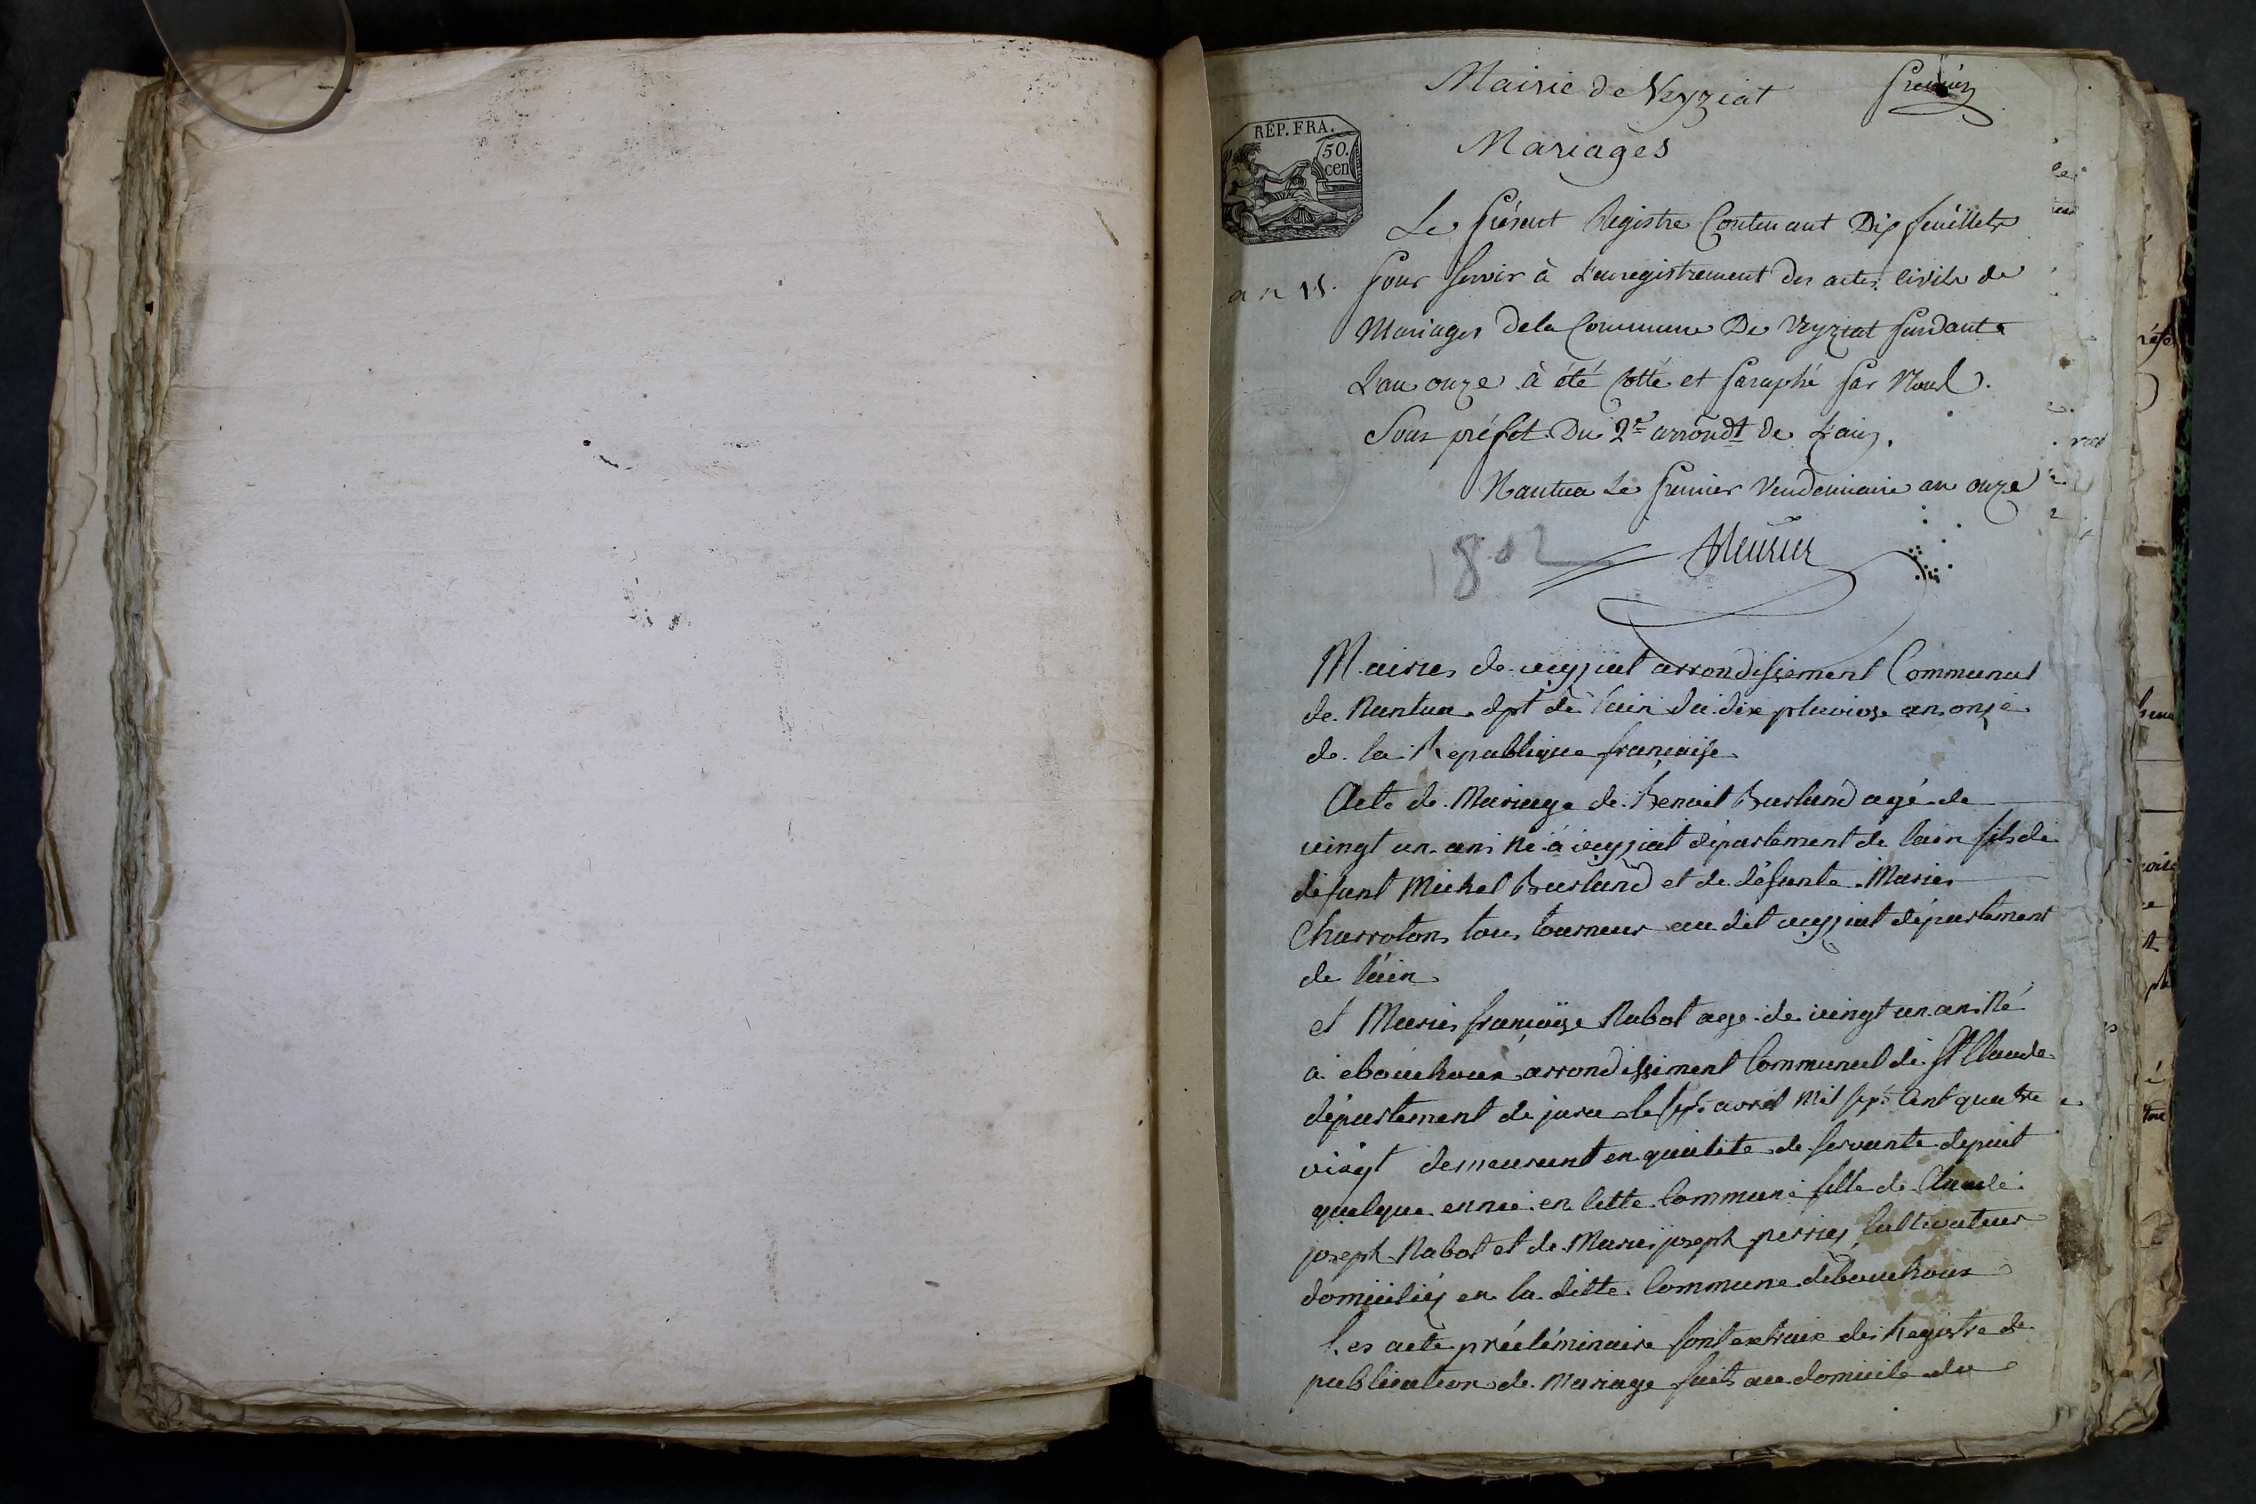 Mairie de Veyziat
premier
Mariages
REP. FRA.
50.
cen
Le présent Registre Contenant Dix feuillets
an 11. pour servir à l'enregistrement des actes civils de
Mariages de la Commune De Veyziat pendant
L'an onze à été Cotté et paraphé par Nous
Sous préfet Du 2e arrondt de L'ain.
Nantua Le premier Vendemiaire an onze
1802
Mairies de veyziat arrondissement Communal
de Nantua dpt de l'ain du dix pluviose an onze
de la Republique française
Acte de Mariage de Benoit Burland agé de
vingt un ans né à veyziat département de lain fils de
défunt Michel Burland et de défunte Maries
Charroton tous tourneur au dit veyziat département
de l'ain
et Maries françoise Nabot age de vingt un ans Né
à ebouchoux arrondissement Communal de St Claude
département de jura le sept avril mil sept Cent quatre
vingt demeurant en qualite de servante depuit
quelque année en cette Commune fille de Claude
joseph Nabot et de Marie joseph perrier Cultivateur
domiciliés en la ditte Commune débouchoux
Les acte préeléminaire sont extraix des Registre de
publication de Mariage faits au domicile du